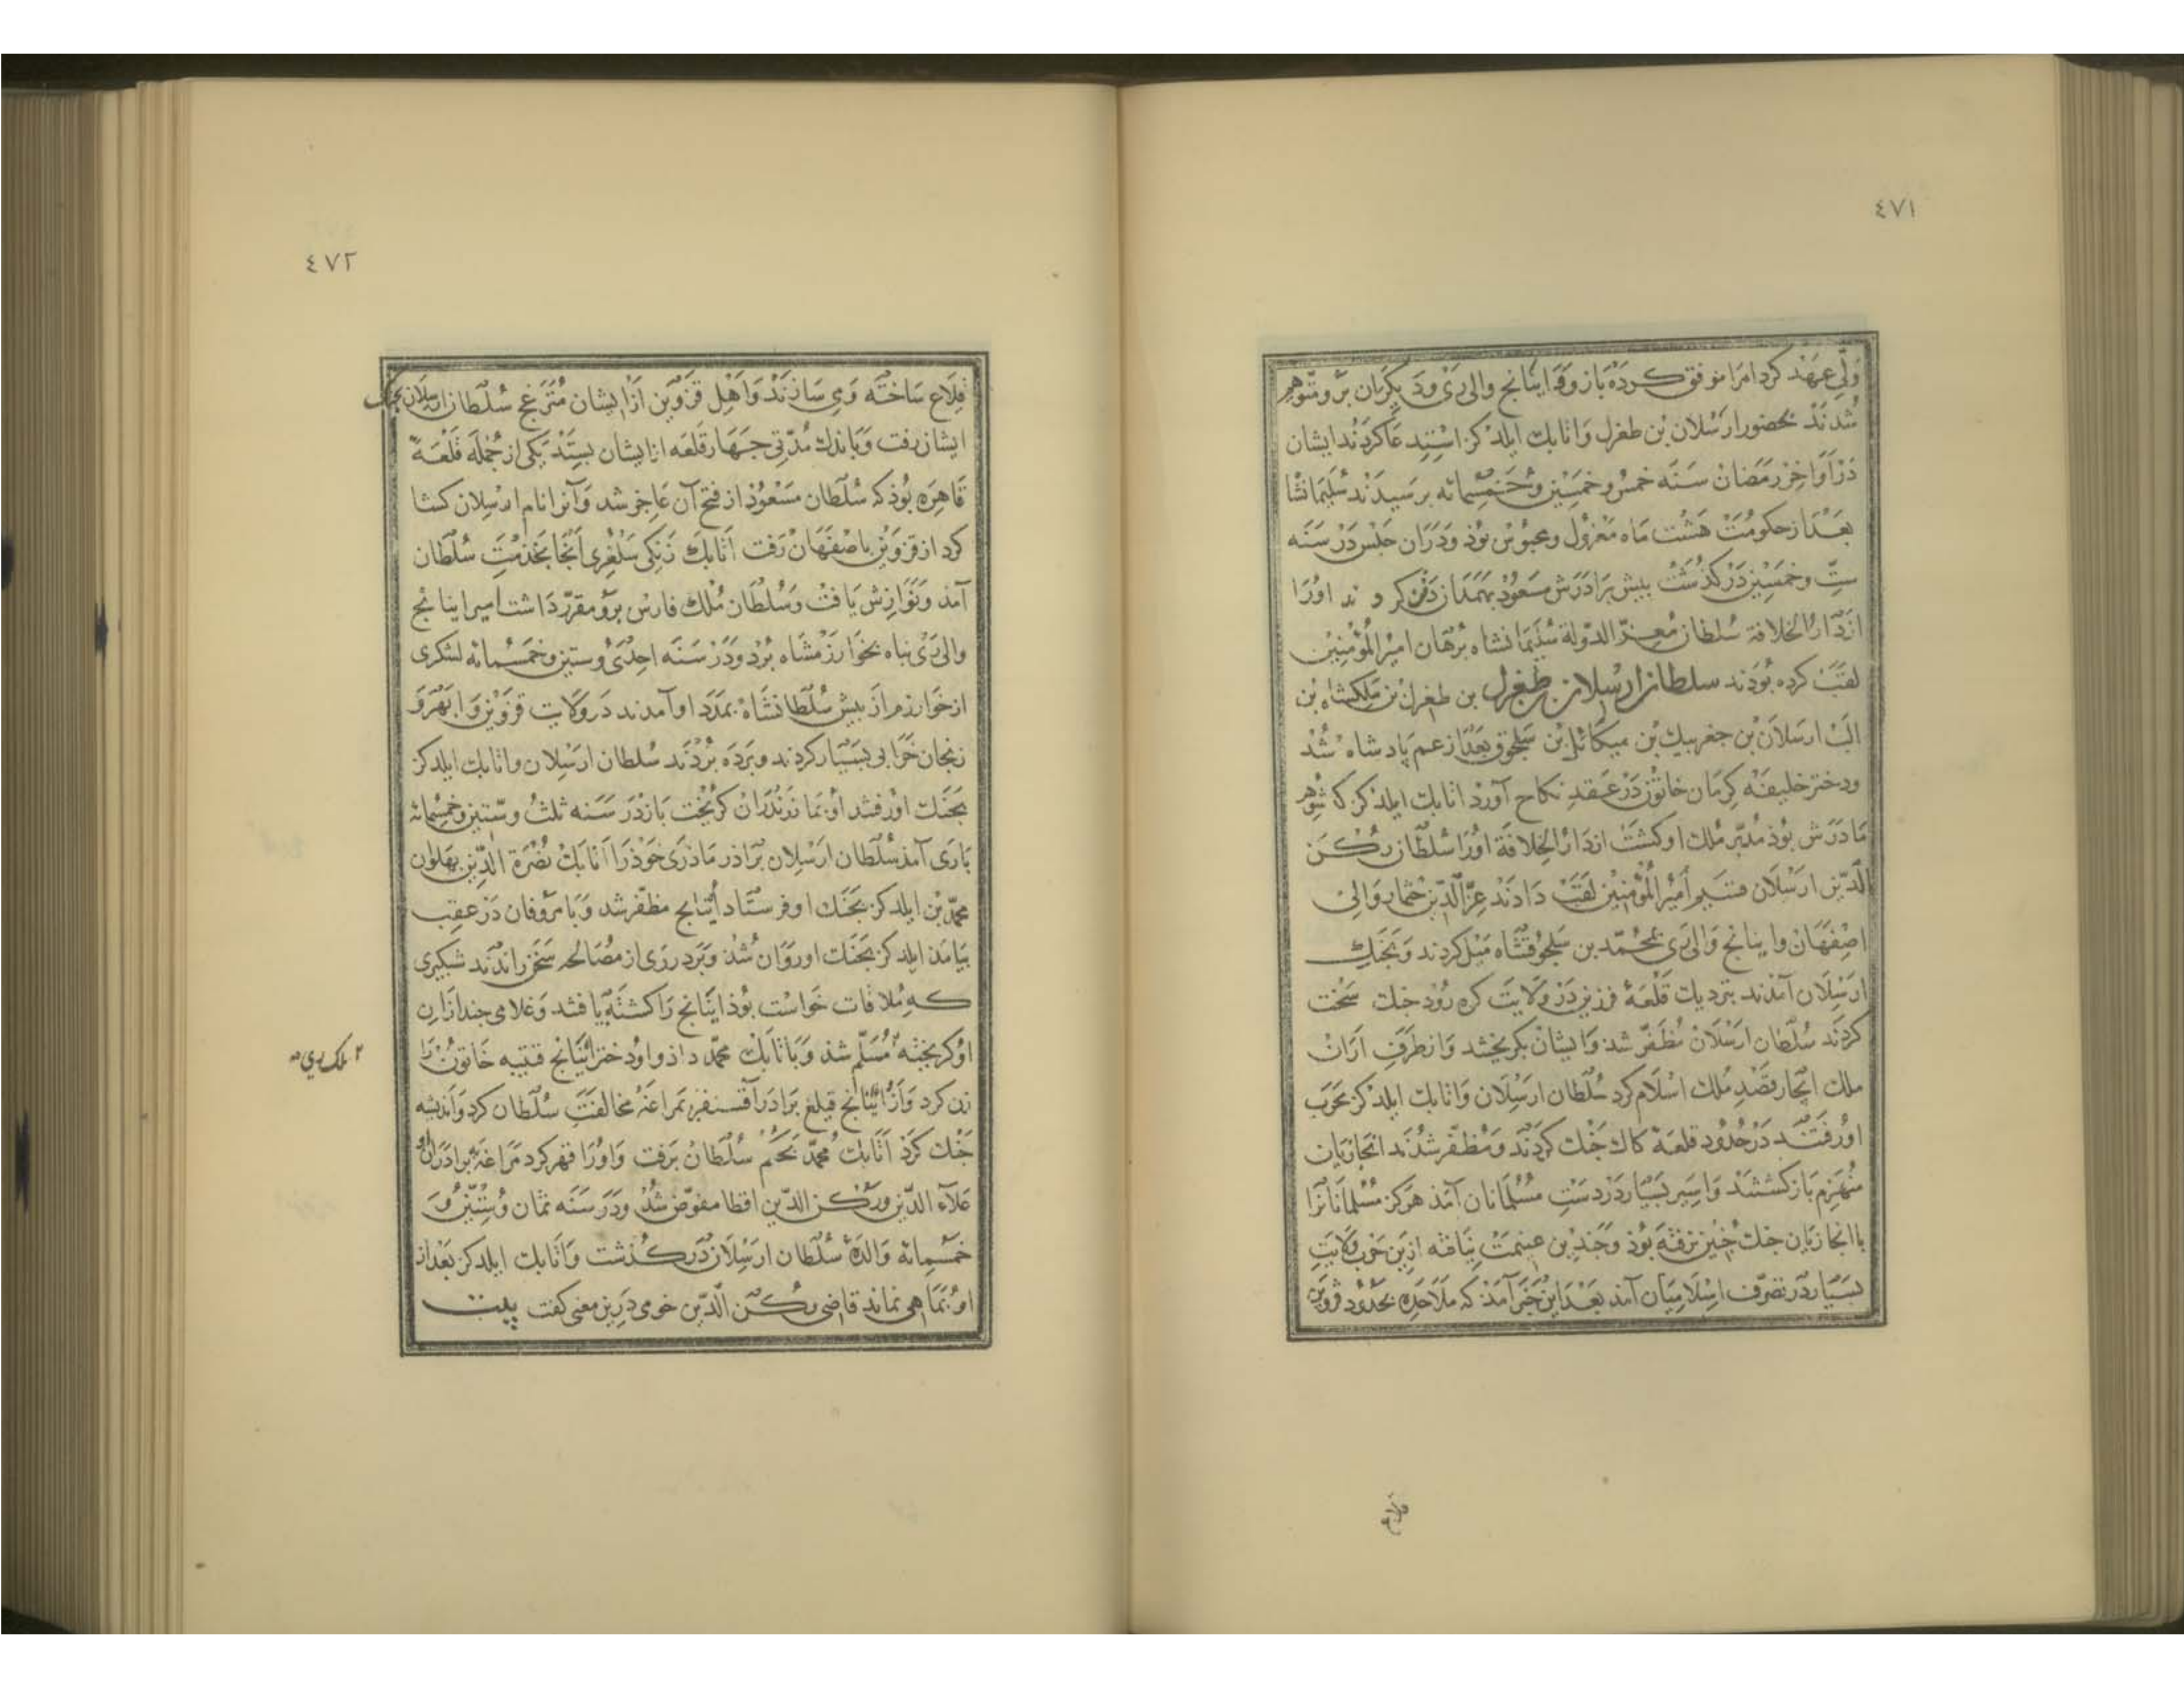 ٤٧١
ولی عهد کرد امرا موفق کرده باز و قدا ینانج والی ری و دیگران برو متوهم
شدند بحضور ارسلان بن طغرل و اتابك ایلدکز استدعا کردند ایشان
در اواخر رمضان سنه خمس و خمسین و خمسمائه برسیدند سلیمانشا
بعد از حکومت هشت ماه معزول و محبوس بوذ و در ان حبس در سنه
ست و خمسین در کذشت بیش برادرش مسعود بهمدان دفن کر د ند اورا
از دار الخلافة سلطان معز الدولة سلیمانشاه برهان امیر المؤمنین
لقب کرده بودند سلطان ارسلان بن طغرل بن طغرل بن ملکشاه بن
الب ارسلان بن جغریبك بن میکائل بن سلجوق بعد از عم پادشاه شد
ودختر خلیفه کرمان خاتون در عقد نکاح آورد اتابك ایلدکز که شوهر
مادرش بوذ مدبر ملك او کشت از دار الخلافة اورا سلطان رکن
الدین ارسلان قسیم أمیر المؤمنین لقب دادند عز الدین قتمار والی
اصفهان و اینانج والی ری بمحمد بن سلجوقشاه میل کردند و بجنك
ارسلان آمدند بنزدیك قلعهٔ فرزین در ولایت کره رود جنك سخت
کردند سلطان ارسلان مظفر شد و ایشان بکریختند و از طرف اران
ملك ابخار قصد ملك اسلام کرد سلطان ارسلان و اتابك ایلدکز بحرب
اور فتند در حدود قلعهٔ کاك جنك کردند و مظفر شدند ابخازیان
منهزم باز کشتند و اسیر بسیار در دست مسلمانان آمد هرکز مسلمانانرا
با ابخازیان جنك چنین نرفته بوذ و چندین غنیمت نیافته ازین حرب ولایت
بسیار در تصرف اسلامیان آمد بعد این خبر آمد که ملاحده بحدود قزوین
قلاع
٤٧٢
قلاع ساخته و می سازند و اهل قزوین از ایشان منزعج سلطان ارسلان بجنك
ایشان رفت و باندك مدتی جهار قلعه از ایشان بستد یکی از جمله قلعهٔ
قاهره بوذ که سلطان مسعود از فتح آن عاجز شد و آنرا نام ارسلان کشا
کرد از قزوین باصفهان رفت اتابك زنکی سلغری آنجا بخدمت سلطان
آمد و نوازش یافت و سلطان ملك فارس برو مقرر داشت امیر اینانج
والی ری بناه بخوارزمشاه برد و در سنه احدی و ستین و خمسمائه لشکری
از خوارزم از بیش سلطانشاه بمدد او آمدند در ولایت قزوین و ابهر و
زنجان خرابی بسیار کردند و برده بردند سلطان ارسلان و اتابك ایلدکز
بجنك اور فتند او بما زندران کریخت باز در سنه ثلث و ستین و خمسمائه
باری آمد سلطان ارسلان برادر مادری خوذرا اتابك نصرة الدین بهلوان
محمد بن ایلدکز بجنك او فرستاد اینانج مظفر شد و با مروفان در عقب
بیامد ایلدکز بجنك او روان شد و برد رری از مصالحه سخن راندند شبکیری
که ملاقات خواست بوذ اینانج را کشته یافتند و غلامی چند ازان
او کریخته ٢ مسلم شد و باتابك محمد داذ و او دختر اینانج قتیبه خاتون را
٢ ملك ری صه
زن کرد و از اینانج قیلغ برادر آقسنقر بمراغه مخالفت سلطان کرد و اندیشه
جنك کرد اتابك محمد بحکم سلطان برفت و اورا قهر کرد مراغه ببرادران او
علاء الدین و رکن الدین اقطا مفوض شد و در سنه ثمان و ستین و
خمسمائه والدهٔ سلطان ارسلان در کذشت و اتابك ایلدکز بعد از
او بماهی نماند قاضی رکن الدین خوی درین معنی کفت بیت